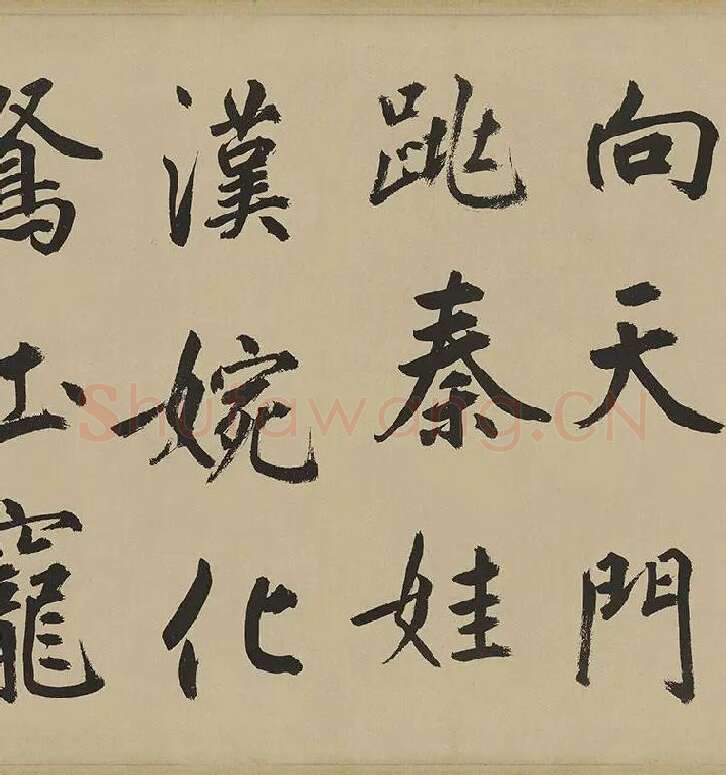 向天門
跳秦娃
漢婉化
土
Shufawang.CN